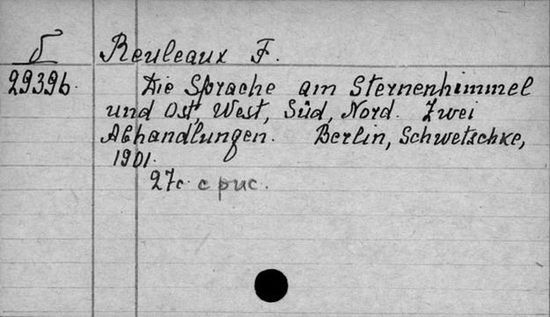 Б Reuleaux F.
29396. Die Sprache am Sternenhimmel
und Ost, West, Süd, Nord. Zwei
Abhandlungen. Berlin, Schwetschke,
1901.
27с. с рис.